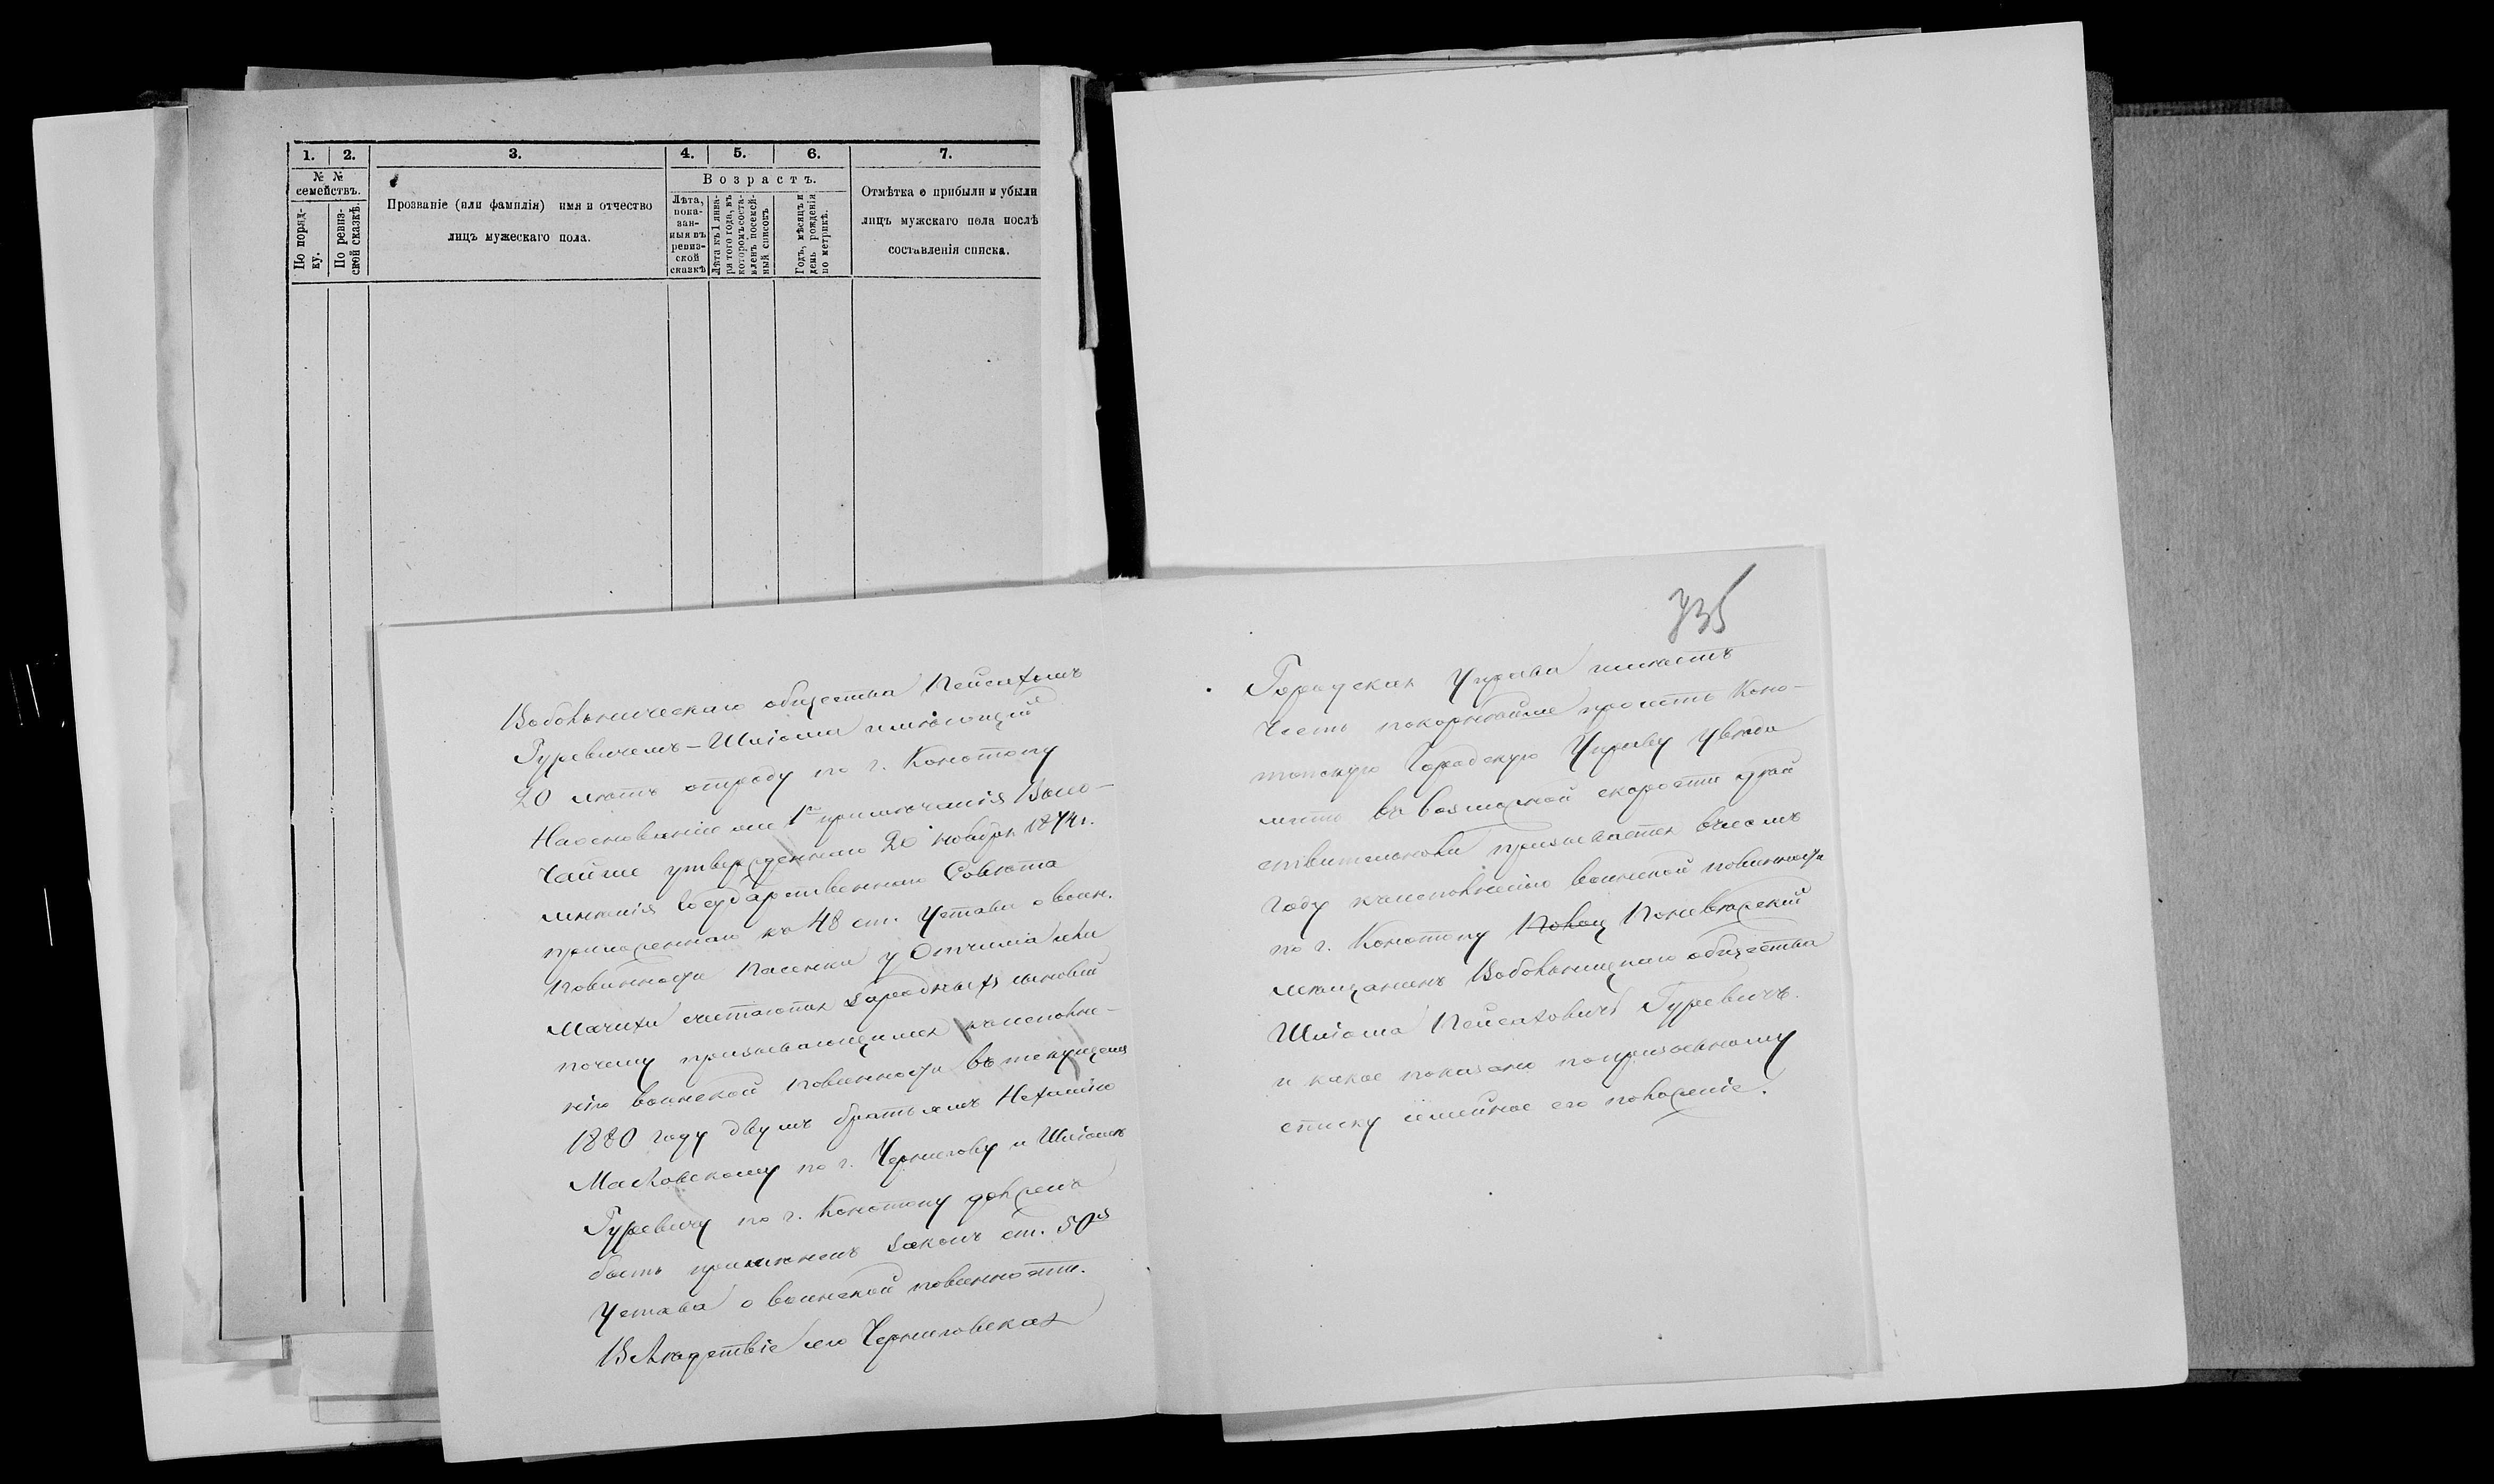 1.
2.
3.
4.
5.
6.
7.
№ №
семействъ.
По поряд-
ку.
По ревиз-
ской сказкѣ.
Прозваніе (или фамилія) имя и отчество
лицъ мужескаго пола.
Возрастъ.
Лѣта,
пока-
зан-
ныя въ
ревиз-
ской
сказкѣ
Лѣта къ 1 янва-
ря того года, въ
которомъ соста-
вленъ посемей-
ный списокъ
Годъ, мѣсяцъ и
день рожденія
по метрикѣ.
Отмѣтка о прибыли и убыли
лицъ мужскаго пола послѣ
составленія списка.
общества Пейсахомъ
Гуревичемъ – Шліома имѣющій
20 лѣтъ отроду по г. Конотопу
На основаніи 1го примѣчанія Высо-
чайше утвержденнаго 20 ноября 1874 г.
мнѣнія Государственнаго Совѣта
приложеннаго къ 48 ст. Устава о воин.
повинности пасынки у Отчима или
Мачихи считаются зародныхъ сыновей
почему призывающимся къ исполне-
нію воинской повинности въ текущемъ
1880 году двумъ братьямъ Нехамію
Масловскому по г. Чернигову и Шліомѣ
Гуревичу по г. Конотопу долженъ
быть примѣненъ законъ ст. 50й
Устава о воинской повинности.
Вслѣдствіе сего Черниговская
735
Городская Управа имѣетъ
честь покорнѣйше просить Коно-
топскую Городскую Управу увѣдо
мить въ возможной скорости дѣй
ствительноли призывается въ семъ
году къ исполненію воинской повинности
по г. Конотопу Поневѣжскій
мѣщанинъ общества
Шліома Пейсаховичъ Гуревичъ.
и какое показано по призывному
списку семейное его положеніе.